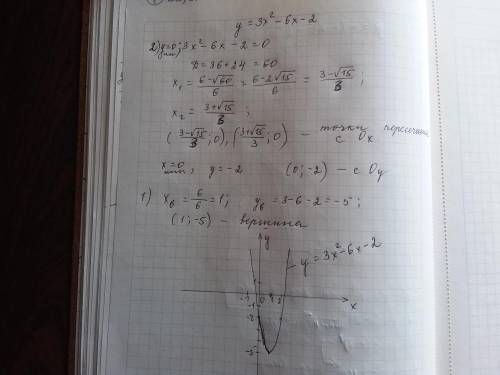 y = 3x² - 6x - 2
2) y=0; 3x² - 6x - 2 = 0
D = 36 + 24 = 60
x₁ = (6-√60)/6 = (6-2√15)/6 = (3-√15)/3 ;
x₂ = (3+√15)/3 ;
((3-√15)/3 ; 0), ((3+√15)/3 ; 0) - точки
с x
x=0, y = -2 (0; -2) - с Oy
1) xв = 6/6 = 1; yв = 3-6-2 = -5 ;
(1; -5) - вершина
y
y = 3x² - 6x - 2
-1 0
-1
-2
x
-5